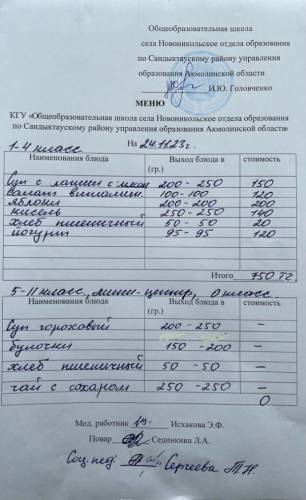 Общеобразовательная школа
села Новоникольское отдела образования
по Сандыктаускому району управления
образования Акмолинской области
И.Ю. Головченко
МЕНЮ
КГУ «Общеобразовательная школа села Новоникольское отдела образования
по Сандыктаускому району управления образования Акмолинской области»
1-4 класс На 24.11.23г.
Наименования блюда Выход блюда в (гр.) стоимость
Суп с лапши с мясом 200-250 150
Салат витамин. 100-100 120
яблоки 200-200 200
кисель 250-250 140
хлеб пшеничный 50-50 20
йогурт 95-95 120
Итого 750 тг.
5-11 класс, мини-центр, 0 класс.
Наименования блюда Выход блюда в (гр.) стоимость
Суп гороховый 200-250 —
булочки 150-200 —
хлеб пшеничный 50-50 —
чай с сахаром 250-250 —
0
Мед. работник Исхакова Э.Ф.
Повар Сединкина Л.А.
Соц.пед: Сергеева Т.Н.